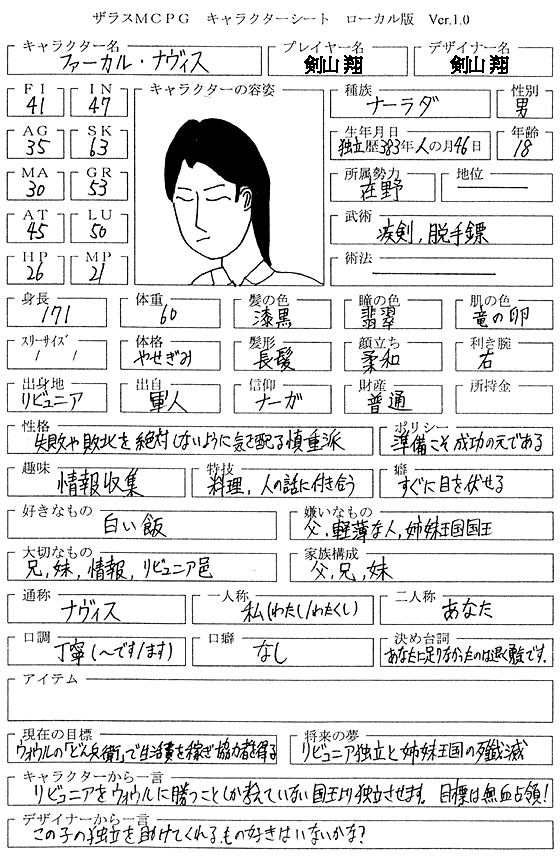 ザラスMCPG キャラクターシート ローカル版 Ver.1.0
キャラクター名 プレイヤー名 デザイナー名
ファーカル・ナヴィス 剣山 翔 剣山 翔
FI IN キャラクターの容姿 種族 性別
41 47 ナーラダ 男
AG SK 生年月日 年齢
35 63 独立歴383年人の月46日 18
MA GR 所属勢力 地位
30 53 在野
AT LU 武術
45 50 疾剣,脱手鏢
HP MP 術法
26 21
身長 体重 髪の色 瞳の色 肌の色
171 60 漆黒 翡翠 竜の卵
スリーサイズ 体格 髪形 顔立ち 利き腕
/ / やせぎみ 長髪 柔和 右
出身地 出自 信仰 財産 所持金
リビュニア 軍人 ナーガ 普通
性格 ポリシー
失敗や敗北を絶対しないように気を配る慎重派 準備こそ成功の元である
趣味 特技 癖
情報収集 料理,人の話に付き合う すぐに目を伏せる
好きなもの 嫌いなもの
白い飯 父,軽薄な人,姉妹王国国王
大切なもの 家族構成
兄,妹,情報,リビュニア邑 父,兄,妹
通称 一人称 二人称
ナヴィス 私(わたし/わたくし) あなた
口調 口癖 決め台詞
丁寧(〜です/ます) なし あなたに足りなかったのは退く勇気です.
アイテム
現在の目標 将来の夢
ウィウルの「どん兵衛」で生活費を稼ぎ協力者を得る リビュニア独立と姉妹王国の殲滅
キャラクターから一言
リビュニアをウィウルに勝つことしか考えていない国王より独立させます。目標は無血占領!
デザイナーから一言
この子の独立を助けてくれるもの好きはいないかな?